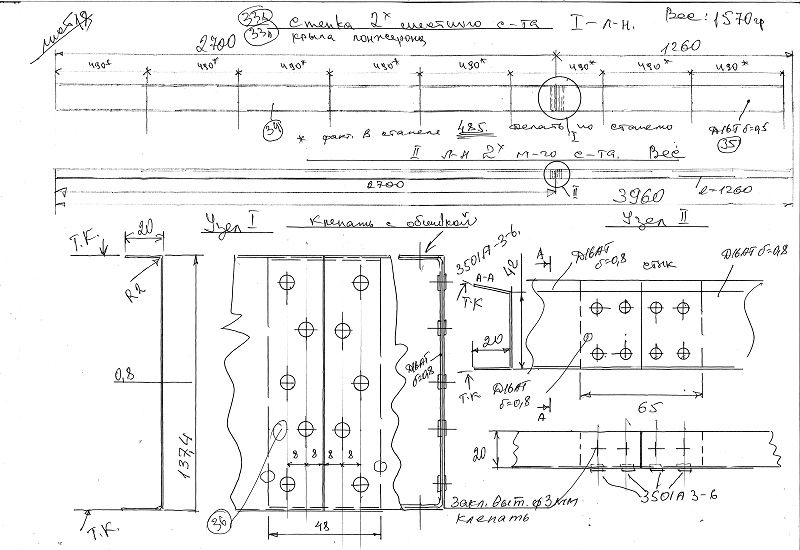 лист 18
33б Стенка 2х местного с-та I - л-н. Вес: 1570гр
33а крыла лонжерона
2700 1260
490* 490* 490* 490* 490* 490* 490* 490*
34
* факт. в стапеле 485. делать по стапелю
I
Д16АТ δ=0,5
35
II л-н 2х м-го с-та. Вес
2700
II
3960
l=1260
20
Узел I клепать с обшивкой
Узел II
Т.К.
R2
0,8
137,4
Т.К.
8 8 8 8
36
48
Д16АТ
δ=0,8
3501А-3-6.
А-А
Т.К
42
20
Т.К
А
Д16АТ
δ=0,8
стык
Д16АТ δ=0,8
Д16АТ
δ=0,8
А
65
20
3501А 3-6
Закл. выт. ф3мм
клепать